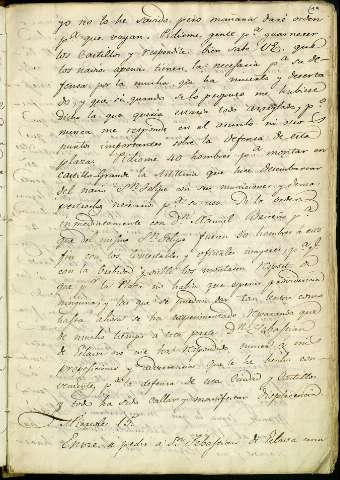 yo no lo he sabido, pero mañana daré orden
pª. que vayan. Pidiome, gente pª. guarnecer
los Castillos y respondile bien sabe V.E. que
los navios apenas tienen la necesaria pª. su de-
fensa por la mucha que ha muerto y deserta
do, y que si quando se lo propuse me hubiese
dicho lo que queria estaria todo arreglado, pº.
nunca me responde en el asunto ni otros
puntos importantes sobre la defensa de esta
plaza. Pidiome 40 hombres pª. montar en
Castillo Grande la Artilleria que hice desembarcar
del navio Sn. Felipe con sus municiones y demas
pertrechos necesarios pª. su uso. Di la orden
inmediatamente con Dn. Manuel pª.
que del mismo Sn. Felipe fuesen 40 hombres á este
fin con los Condestables y oficiales mayores, pª. qe.
con la brevedad posible los montasen
que pª. la Plaza no habia que esperar providencia
ninguna, y las que se puedan dar tan lentas como
hasta ahora se ha experimentado
de mucho tiempo á esta parte Dn. Sebastian
de Eslava no me ha respondido nunca á mis
proposiciones y advertencias que le he hecho con-
venientes, pª. la defensa de esta Ciudad y Castillos
y todo ha sido callar y manifestar displicencia
Miercoles 15.
Envié a pedir á Dn. Sebastian de Eslava una